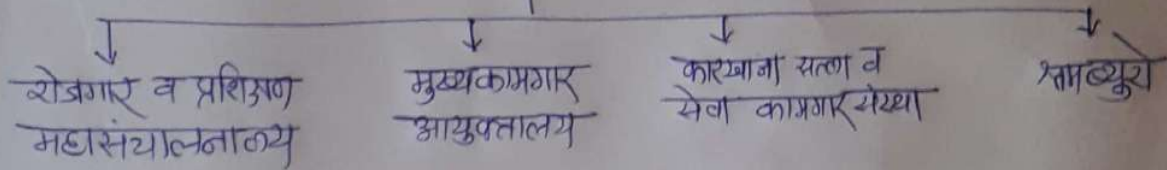 रोजगार व प्रशिक्षण
महासंचालनालय
मुख्यकामगार
आयुक्तालय
कारखाना सल्ला व
सेवा कामगार संस्था
श्रमब्युरो